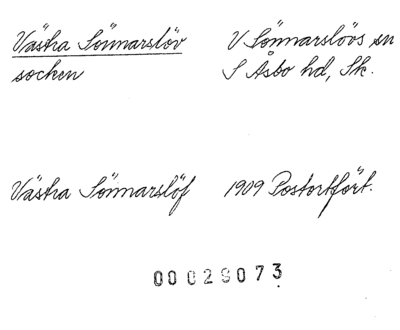 Västra Sönnarslöv V Sönnarslövs sn
socken S Åsbo hd, Sk.
Västra Sönnarslöf 1909 Postortsfört.
00029073